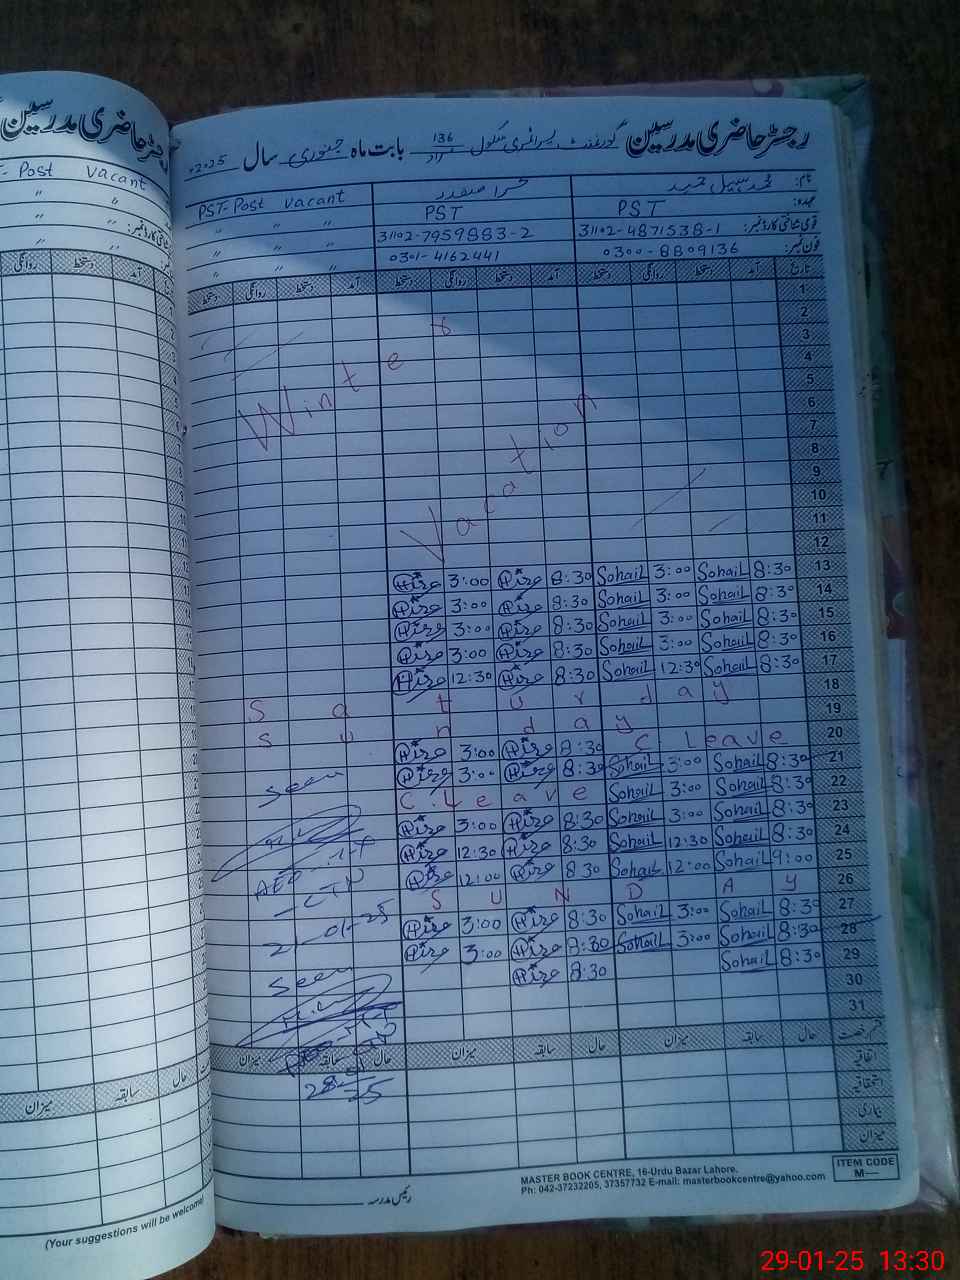 رجسٹر حاضری مدرسین گورنمنٹ پرائمری سکول 136 مراد بابت ماہ جنوری سال 2025
نام: محمد سہیل حمید
PST-Post Vacant
عہدہ: PST PST
قومی شناختی کارڈ نمبر: 31102-4871538-1 31102-7959883-2
فون نمبر: 0300-8809136 0301-4162441
تاریخ آمد دستخط روانگی دستخط آمد دستخط روانگی دستخط آمد دستخط روانگی دستخط
1
2
3
4
5
6
7
8
9
10
11
12
Winter
Vacation
Hira 3:00 Hira 8:30 Sohail 3:00 Sohail 8:30 13
Hira 3:00 Hira 8:30 Sohail 3:00 Sohail 8:30 14
Hira 3:00 Hira 8:30 Sohail 3:00 Sohail 8:30 15
Hira 3:00 Hira 8:30 Sohail 3:00 Sohail 8:30 16
Hira 12:30 Hira 8:30 Sohail 12:30 Sohail 8:30 17
Saturday 18
Sunday 19
Hira 3:00 Hira 8:30 C Leave 20
Hira 3:00 Hira 8:30 Sohail 3:00 Sohail 8:30 21
C.Leave Sohail 3:00 Sohail 8:30 22
Hira 3:00 Hira 8:30 Sohail 3:00 Sohail 8:30 23
Hira 12:30 Hira 8:30 Sohail 12:30 Sohail 8:30 24
Hira 12:00 Hira 8:30 Sohail 12:00 Sohail 9:00 25
SUNDAY 26
Hira 3:00 Hira 8:30 Sohail 3:00 Sohail 8:30 27
Hira 3:00 Hira 8:30 Sohail 3:00 Sohail 8:30 28
Hira 8:30 Sohail 8:30 29
30
31
Seen
21-01-25
Seen
قسم رخصت حال سابقہ میزان حال سابقہ میزان حال سابقہ میزان
اتفاقیہ
استحقاقیہ
بیماری
میزان
رئیس مدرسہ
MASTER BOOK CENTRE, 16-Urdu Bazar Lahore.
Ph: 042-37232205, 37357732 E-mail: masterbookcentre@yahoo.com
ITEM CODE
M—
Post Vacant
روانگی دستخط
میزان سابقہ حال
(Your suggestions will be welcome
29-01-25 13:30